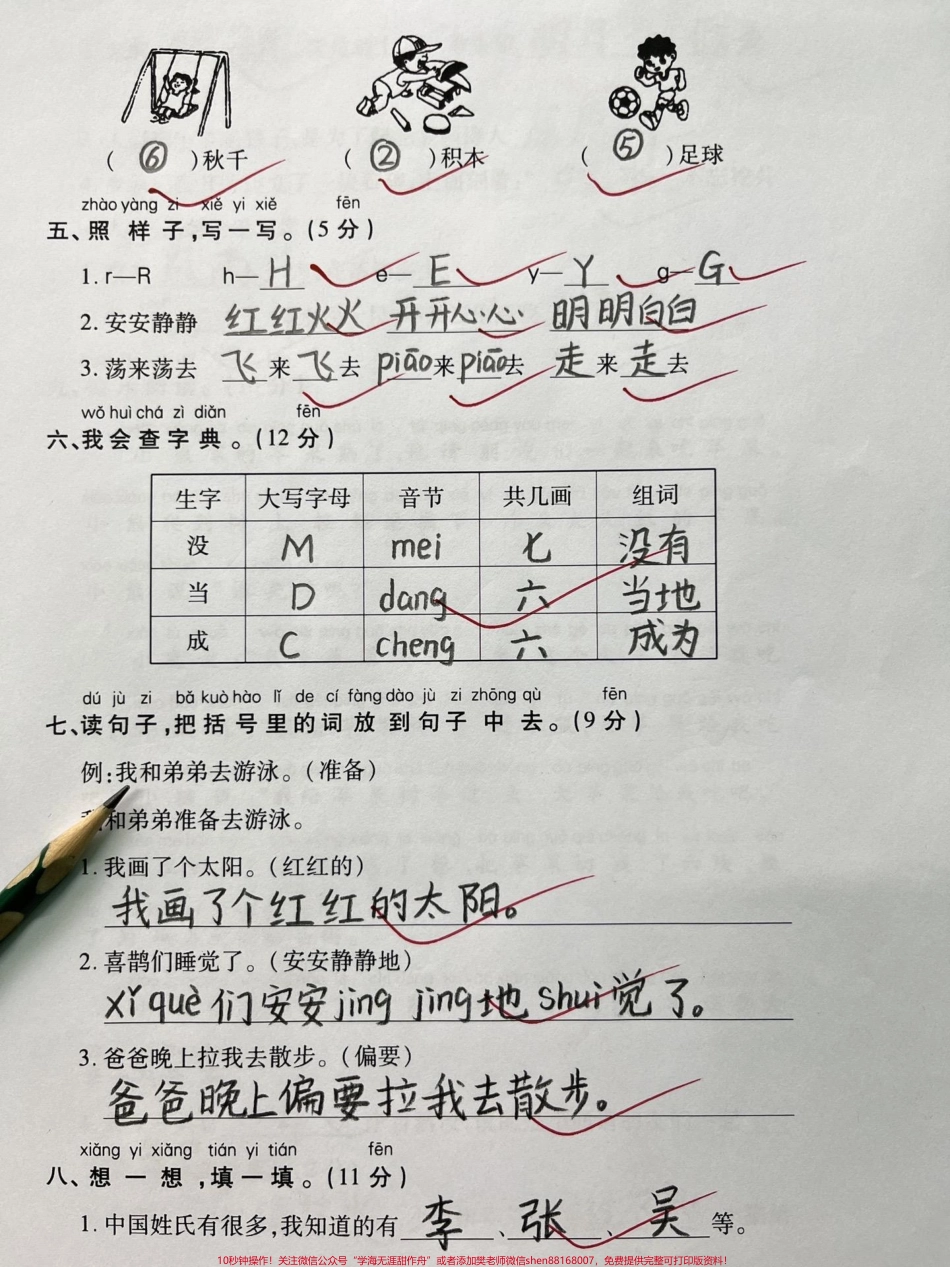 ( ⑥ )秋千 ( ② )积木 ( ⑤ )足球
zhào yàng zi xiě yi xiě fēn
五、照样子,写一写。(5分)
1. r—R h—H e—E y—Y g—G
2. 安安静静 红红火火 开开心心 明明白白
3. 荡来荡去 飞来飞去 piāo来piāo去 走来走去
wǒ huì chá zì diǎn fēn
六、我会查字典。(12分)
生字 大写字母 音节 共几画 组词
没 M mei 七 没有
当 D dang 六 当地
成 C cheng 六 成为
dú jù zi bǎ kuò hào lǐ de cí fàng dào jù zi zhōng qù fēn
七、读句子,把括号里的词放到句子中去。(9分)
例:我和弟弟去游泳。(准备)
我和弟弟准备去游泳。
1. 我画了个太阳。(红红的)
我画了个红红的太阳。
2. 喜鹊们睡觉了。(安安静静地)
xǐ què们安安jing jing地shui觉了。
3. 爸爸晚上拉我去散步。(偏要)
爸爸晚上偏要拉我去散步。
xiǎng yi xiǎng tián yi tián fēn
八、想一想,填一填。(11分)
1. 中国姓氏有很多,我知道的有李、张、吴等。
10秒钟操作！关注微信公众号“学海无涯甜作舟”或者添加樊老师微信shen88168007，免费提供完整可打印版资料！